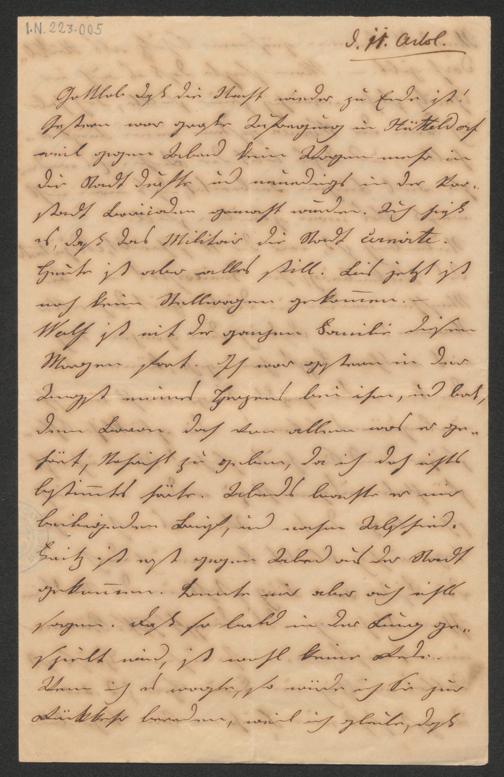 I.N. 223.005
d. 11. Octob.
Gottlob daß die Nacht wieder zu Ende ist!
Gestern war große Aufregung in Hütteldorf
weil gegen Abend kein Wagen mehr in
die Stadt durfte und in der Vor-
stadt Barrikaden gemacht wurden. Auch hieß
es, daß das Militair die Stadt cernirte.
Heute ist aber alles still. Bis jetzt ist
noch kein Stellwagen gekommen. –
Wolf ist mit der ganzen Familie diesen
Morgen fort. Ich war gestern in der
Angst meines Herzens bei ihm, und bat,
dem Baron doch von allem was er ge-
hört, Nachricht zu geben, da ich doch nichts
bestimmtes hörte. Abends brachte er mir
beiliegenden Brief, und nahm Abschied.
Fritz ist erst gegen Abend aus der Stadt
gekommen. konnte mir aber auch nichts
sagen. Daß so bald in der Burg ge-
spielt wird, ist wohl keine Rede.
Wenn ich es wagte, so würde ich Sie zur
Rückkehr bereden, weil ich glaube, daß